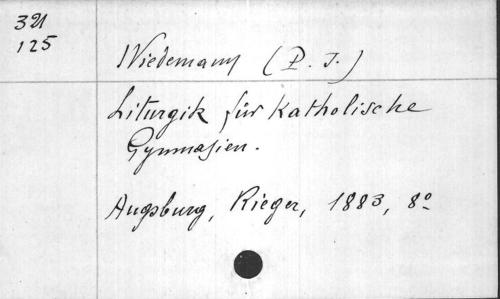 321
125
Wiedemann (P. J.)
Liturgik für Katholische
Gymnasien.
Augsburg, Rieger, 1883, 8º